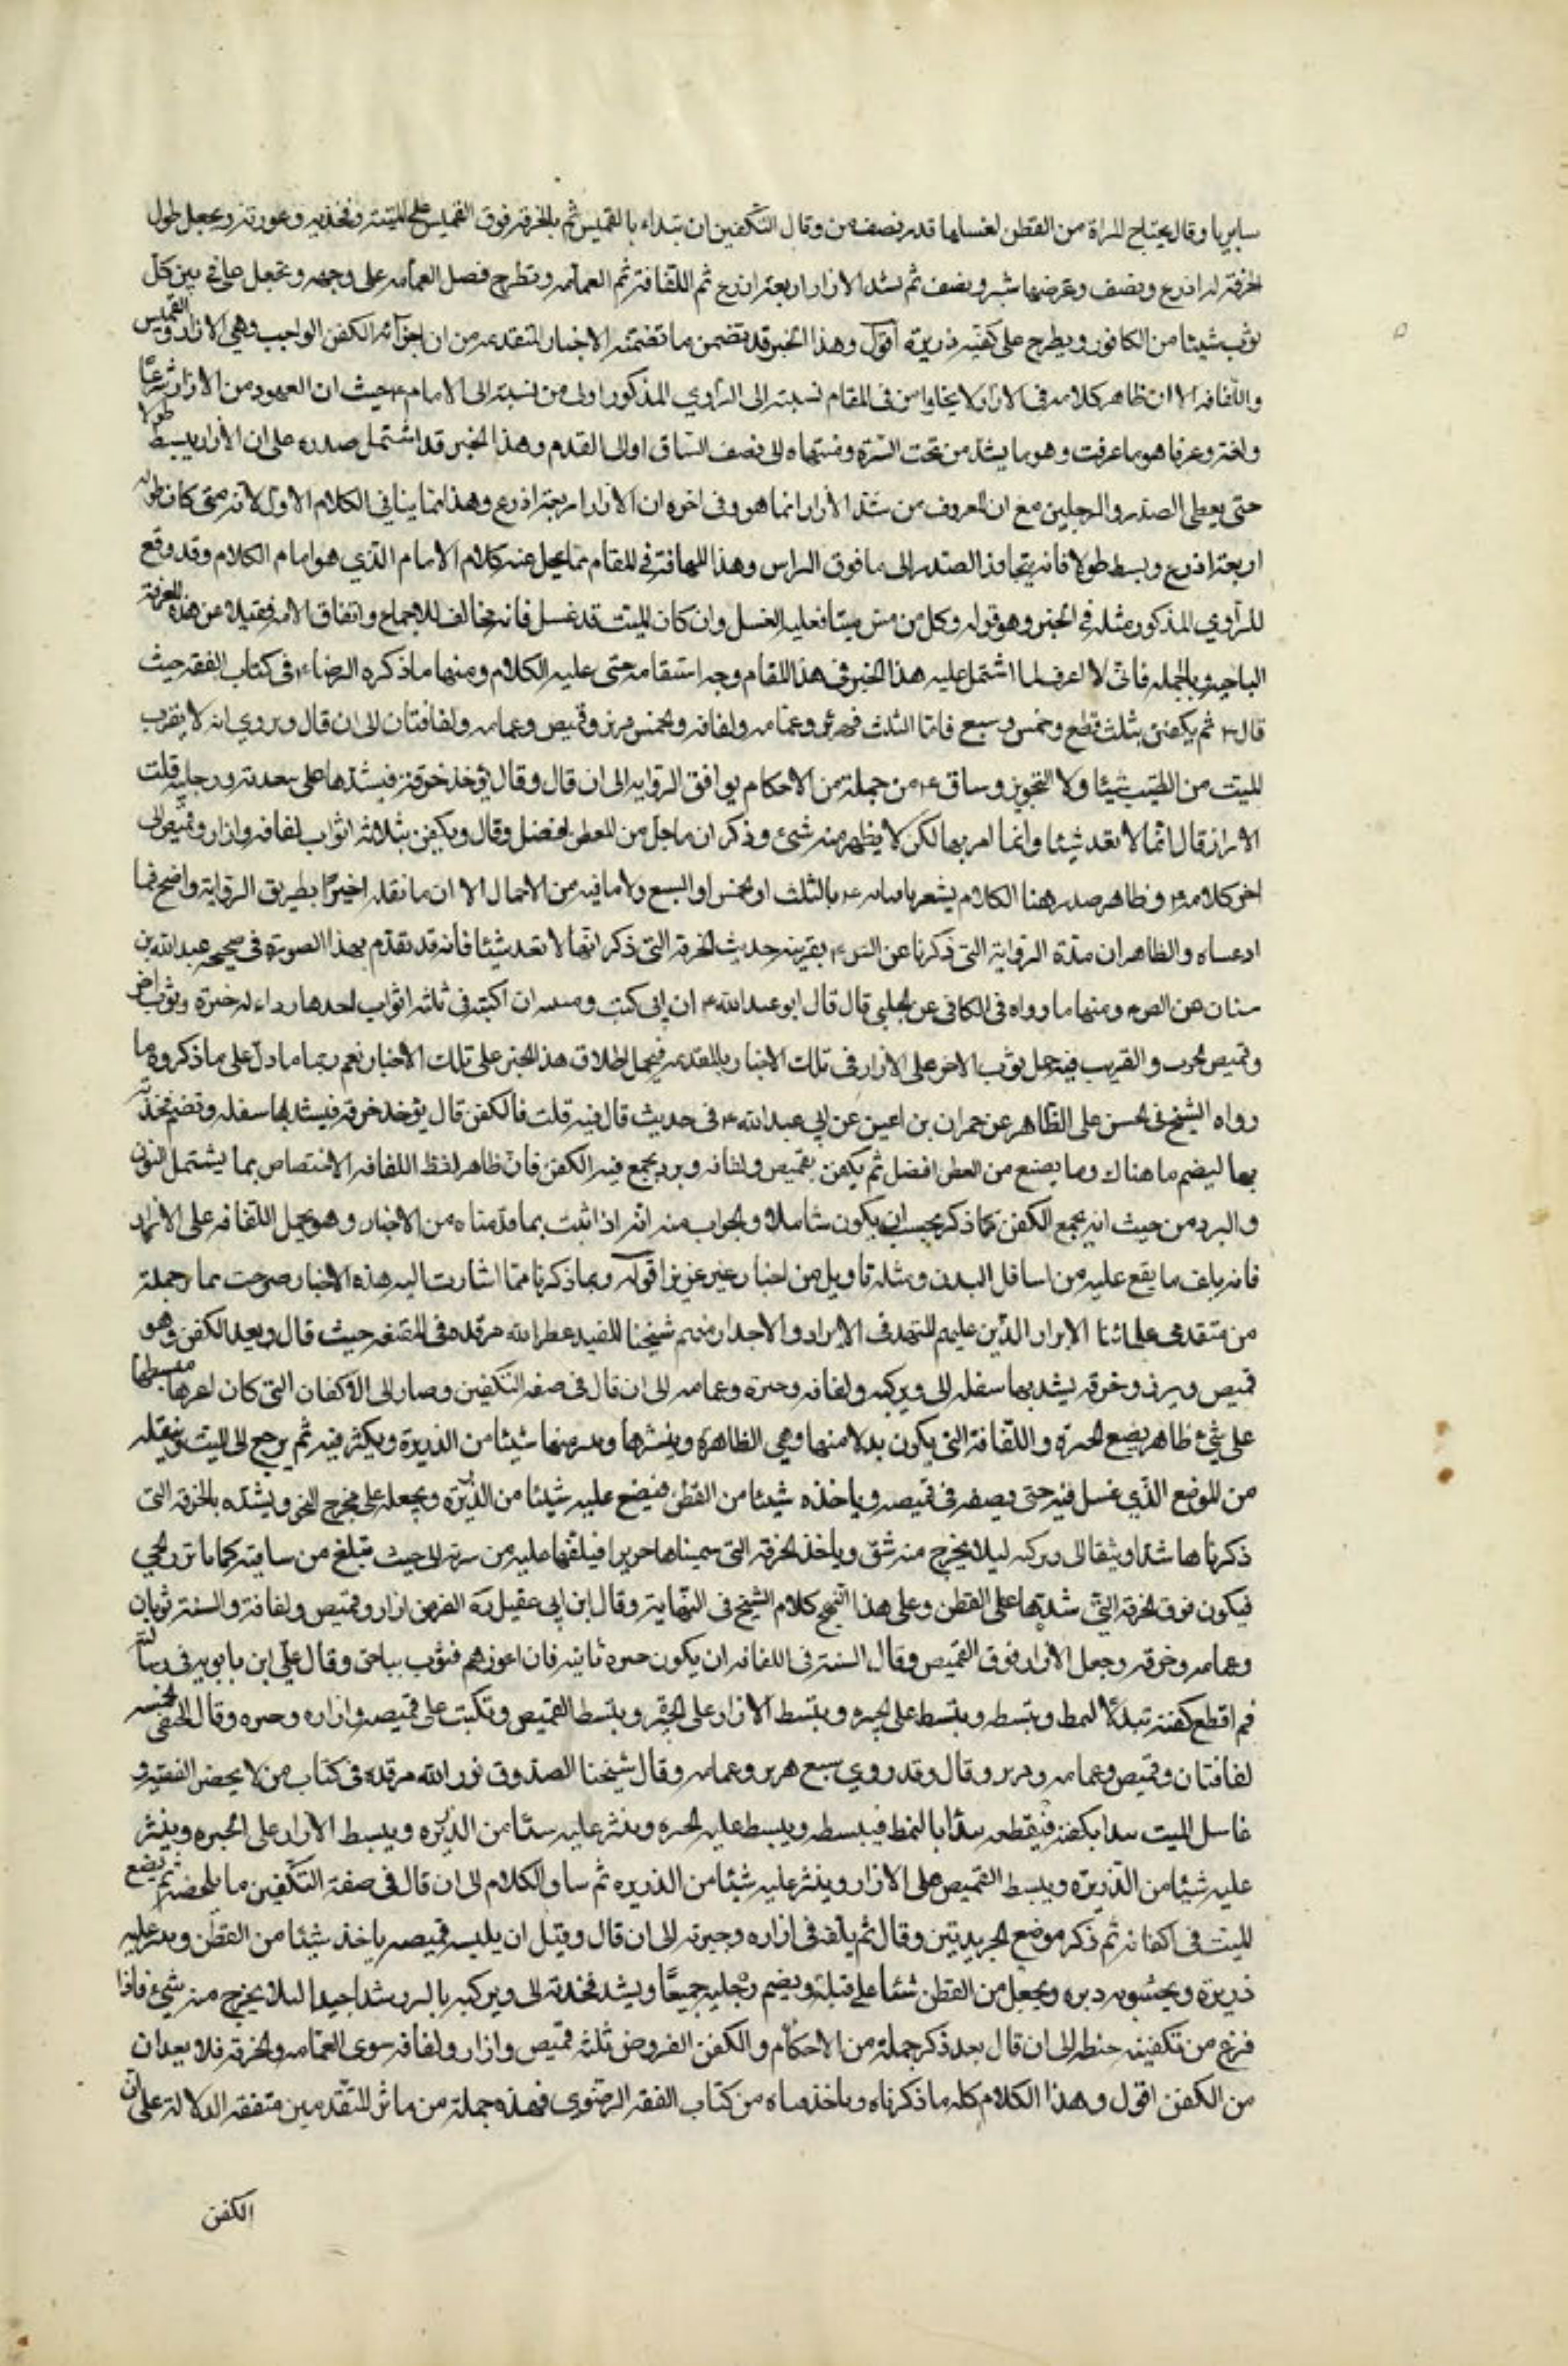 سابريا وقال يحتاج المراة من القطن لغسلها قدر نصف من وقال التكفين ان تبداء بالقميص ثم بالخرقة فوق القميص على الييه وفخذيه وعورته ويجعل طول
الخرقة ثلثة اذرع ونصف وعرضها شبر ونصف ثم يشد الازار اربعة اذرع ثم اللفافة ثم العمامه وتطرح فضل العمامه على وجهه وتجعل على في بين كل
ثوب شيئا من الكافور ويطرح على كفنه ذريرة اقول وهذا الخبر قد تضمن ما تضمنته الاخبار المتقدمه من ان اجزائه الكفن الواجب وهي الازار والقميس
واللفافه الا ان ظاهر كلامه فى الازار لا يخلوا من فى المقام نسبته الى الراوي المذكور اولى من نسبته الى الامام ع حيث ان المعهود من الازار شرعًا
ولغة وعرفا هو ما عرفت وهو ما يشد من تحت السرة ومنتهاه الى نصف الساق او الى القدم وهذا الخبر قد اشتمل صدره على ان الازار يبسط طولا
حتى يغطى الصدر والرجلين مع ان المعروف من شد الازار انما هو وفى اخره ان الازار اربعة اذرع وهذا انما ينافى الكلام الاول لانه متى كان طوله
اربعة اذرع وبسط طولا فانه يتجاوز الصدر الى ما فوق الراس وهذا التهافت في المقام مما يجل عنه كلام الامام الذي هو امام الكلام وقد وقع
للراوي المذكور مثله في الخبر وهو قوله وكل من مس ميتا فعليه الغسل وان كان الميت قد غسل فانه مخالف للاجماع واتفاق الامه فضلا عن هذه الفرقة
الناجيه وبالجمله فانى لا اعرف لما اشتمل عليه هذا الخبر فى هذا المقام وجه استقامه حتى عليه الكلام ومنها ما ذكره الرضاء ع فى كتاب الفقه حيث
قال ع ثم يكفن بثلث قطع وخمس وسبع فاما الثلث فمئزر وعمامه ولفافه والخمس مئزر وقميص وعمامه ولفافتان الى ان قال وروي انه لا يقرب
الميت من الطيب شيئا ولا التجويز وساق ع من جملة من الاحكام يوافق الروايه الى ان قال وقال يؤخذ خرقة فيشدها على مقعدته ورجليه قلت
الازار قال انها لا تعد شيئا وانما امر بها لكن لا يظهر منه شئ وذكر ان ما جعل من القطن افضل وقال ويكفن بثلاثه اثواب لفافه وازار وقميص الى
اخر كلامه ع وظاهر صدر هذا الكلام يشعر بالثلث او الخمس او السبع ولا ما فيه من الاجمال الا ان ما نقله اخيرًا بطريق الرواية واضح فيما
ادعيناه والظاهر ان هذه الرواية التى ذكرنا عن بقرينه حديث الخرقة التى ذكر انها لا تعد شيئا فانه قد تقدم بهذا الصورة فى صحيحه عبد الله بن
سنان ومنها ما رواه فى الكافى عن الحلبي قال قال ابو عبد الله ع ان ابى كتب ان اكفنه فى ثلثه اثواب احدها رداء له حبرة وثوب اخر
وقميص والقريب فيه حمل ثوب الاخر على الازار فى تلك الاخبار المتقدمه فيحمل اطلاق هذا الخبر على تلك الاخبار نعم ربما ما دل على ما ذكروه ما
رواه الشيخ فى الحسن على الظاهر عن حمران بن اعين عن ابي عبد الله ع فى حديث قال فيه قلت فالكفن قال يؤخذ خرقة فيشد بها سفله وتضم فخذيه
بها ليضم ما هناك وما يصنع من القطن افضل ثم يكفن بقميص ولفافه وبرد يجمع فيه الكفن فان ظاهر لفظ اللفافه الاختصاص بما يشتمل
والبرد من حيث انه يجمع الكفن كما ذكر يجب ان يكون شاملا والجواب منه انه اذا ثبت بما قدمناه من الاخبار وهو يحمل اللفافه على الازار
فانه يلف ما يقع عليه من اسافل البدن ومثله تاويل من اخبار غير عزيز اقول وبما ذكرنا مما اشارت اليه هذه الاخبار صرحت جملة
من متقدمى علمائنا الابرار الذين عليهم المعتمد فى الايراد والاصدار منهم شيخنا المفيد عطر الله مرقده فى المقنعه حيث قال ويعد الكفن وهو
قميص وميزر وخرقة يشد بها سفله الى وركيه ولفافه وحبرة وعمامه الى ان قال فى صفه التكفين وصار الى الاكفان التى كان اعدها فبسطها
على شئ ظاهر يضع الحبره واللفافة التى يكون بدلا منها وهي الظاهرة وينشرها وينثر منها شيئا من الذريرة ويكثر فيه ثم يرجع الى الميت فينقله
من الموضع الذي غسل فيه حتى يضعه فى قميصه وياخذه شيئا من القطن فيضع عليه شيئا من الذريره ويجعله على مخرج النجو ويشده بالخرقه التى
ذكرناها شدا وثيقا الى وركيه ليلا يخرج منه شئ وياخذ الخرقة التى سميناها ميزرا فيلفها عليه من سرته الى حيث تبلغ من ساقيه كما ياتزر الحي
فيكون فوق الخرقه التى شدها على القطن وعلى هذا النهج كلام الشيخ فى النهاية وقال ابن ابى عقيل ره الفرض ازار وقميص ولفافة والسنة ثوبان
وعمامه وخرقه وجعل الازار فوق القميص وقال السنة فى اللفافه ان يكون حبره ثانيه فان اعوزهم فثوب بياض وقال علي ابن بابويه فى رسالته
ثم اقطع كفنه تبداء النمط وتبسطه وتبسط على الحبره وتبسط الازار على الحبرة وتبسط القميص وتكتب على قميصه وازاره وحبره وقال الجعفى الخمسه
لفافتان وقميص وعمامه وميزر وقال وقد روي سبع ميزر وعمامه وقال شيخنا الصدوق نور الله مرقده فى كتاب من لا يحضر الفقيه و
غاسل الميت يبدا بكفنه فيقطعه يبدأ بالنمط فيبسطه ويبسط عليه الحبره وينثر عليه شيئا من الذريره ويبسط الازار على الحبره وينثر
عليه شيئا من الذريرة ويبسط القميص على الازار وينثر عليه شيئا من الذريره ثم ساق الكلام الى ان قال فى صفة التكفين ما يلحضه ثم يضع
الميت فى اكفانه ثم ذكر موضع الجريدتين وقال ثم يلفه فى ازاره وحبرته الى ان قال وقبل ان يلبسه قميصه ياخذ شيئا من القطن وينثر عليه
ذريرة ويحشو به دبره ويجعل من القطن شيئا على قبله ويضم رجليه جميعًا ويشد فخذيه الى وركيه بالميزر شدا جيدا ليلا يخرج منه شئ فاذا
فرغ من تكفينه حنطه الى ان قال بعد ذكر جملة من الاحكام والكفن المفروض ثلثه قميص وازار ولفافه سوى العمامه والخرقة فلا يعدان
من الكفن اقول وهذا الكلام كله ما ذكرناه وماخذه من كتاب الفقه الرضوى فهذه جملة من المتقدمين متفقه الدلالة على ان
الكفن